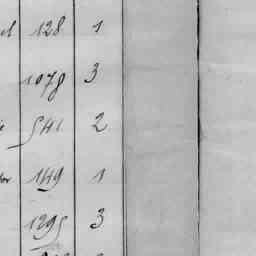 128 1
1078 3
541 2
149 1
1295 3